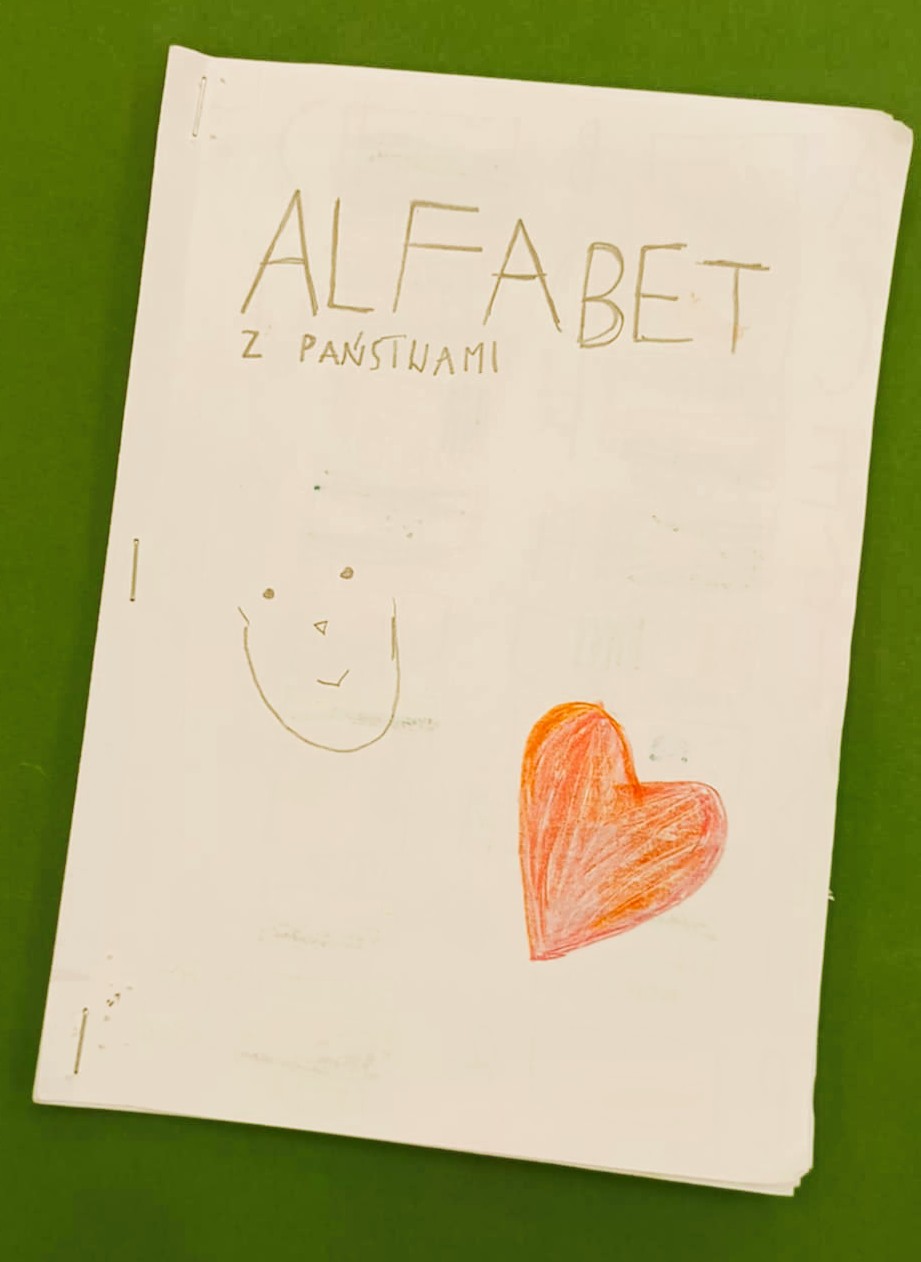 ALFABET
Z PAŃSTWAMI